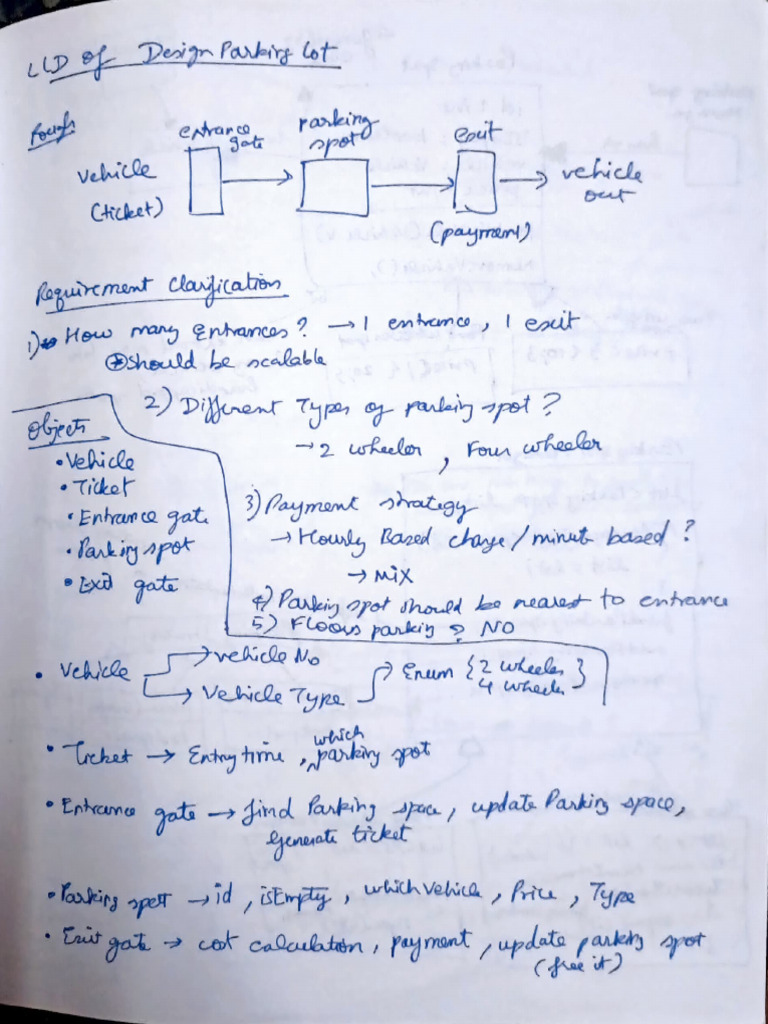 LLD of Design Parking Lot
Rough
entrance gate
parking spot
exit
vehicle
(ticket)
vehicle out
(payment)
Requirement Clarification
1) How many entrances? → 1 entrance, 1 exit
should be scalable
2) Different Types of parking spot?
→ 2 wheeler, Four wheeler
Objects
• Vehicle
• Ticket
• Entrance gate
• Parking spot
• Exit gate
3) Payment strategy
→ Hourly Based charge/minut based?
→ Mix
4) Parking spot should be nearest to entrance
5) Floors parking? NO
• Vehicle → vehicle No
→ Vehicle Type → Enum {2 wheeler
4 wheeler}
• Ticket → Entry time, which parking spot
• Entrance gate → find Parking space, update Parking space,
generate ticket
• Parking spot → id, isEmpty, which vehicle, Price, Type
• Exit gate → cost calculation, payment, update parking spot
(free it)